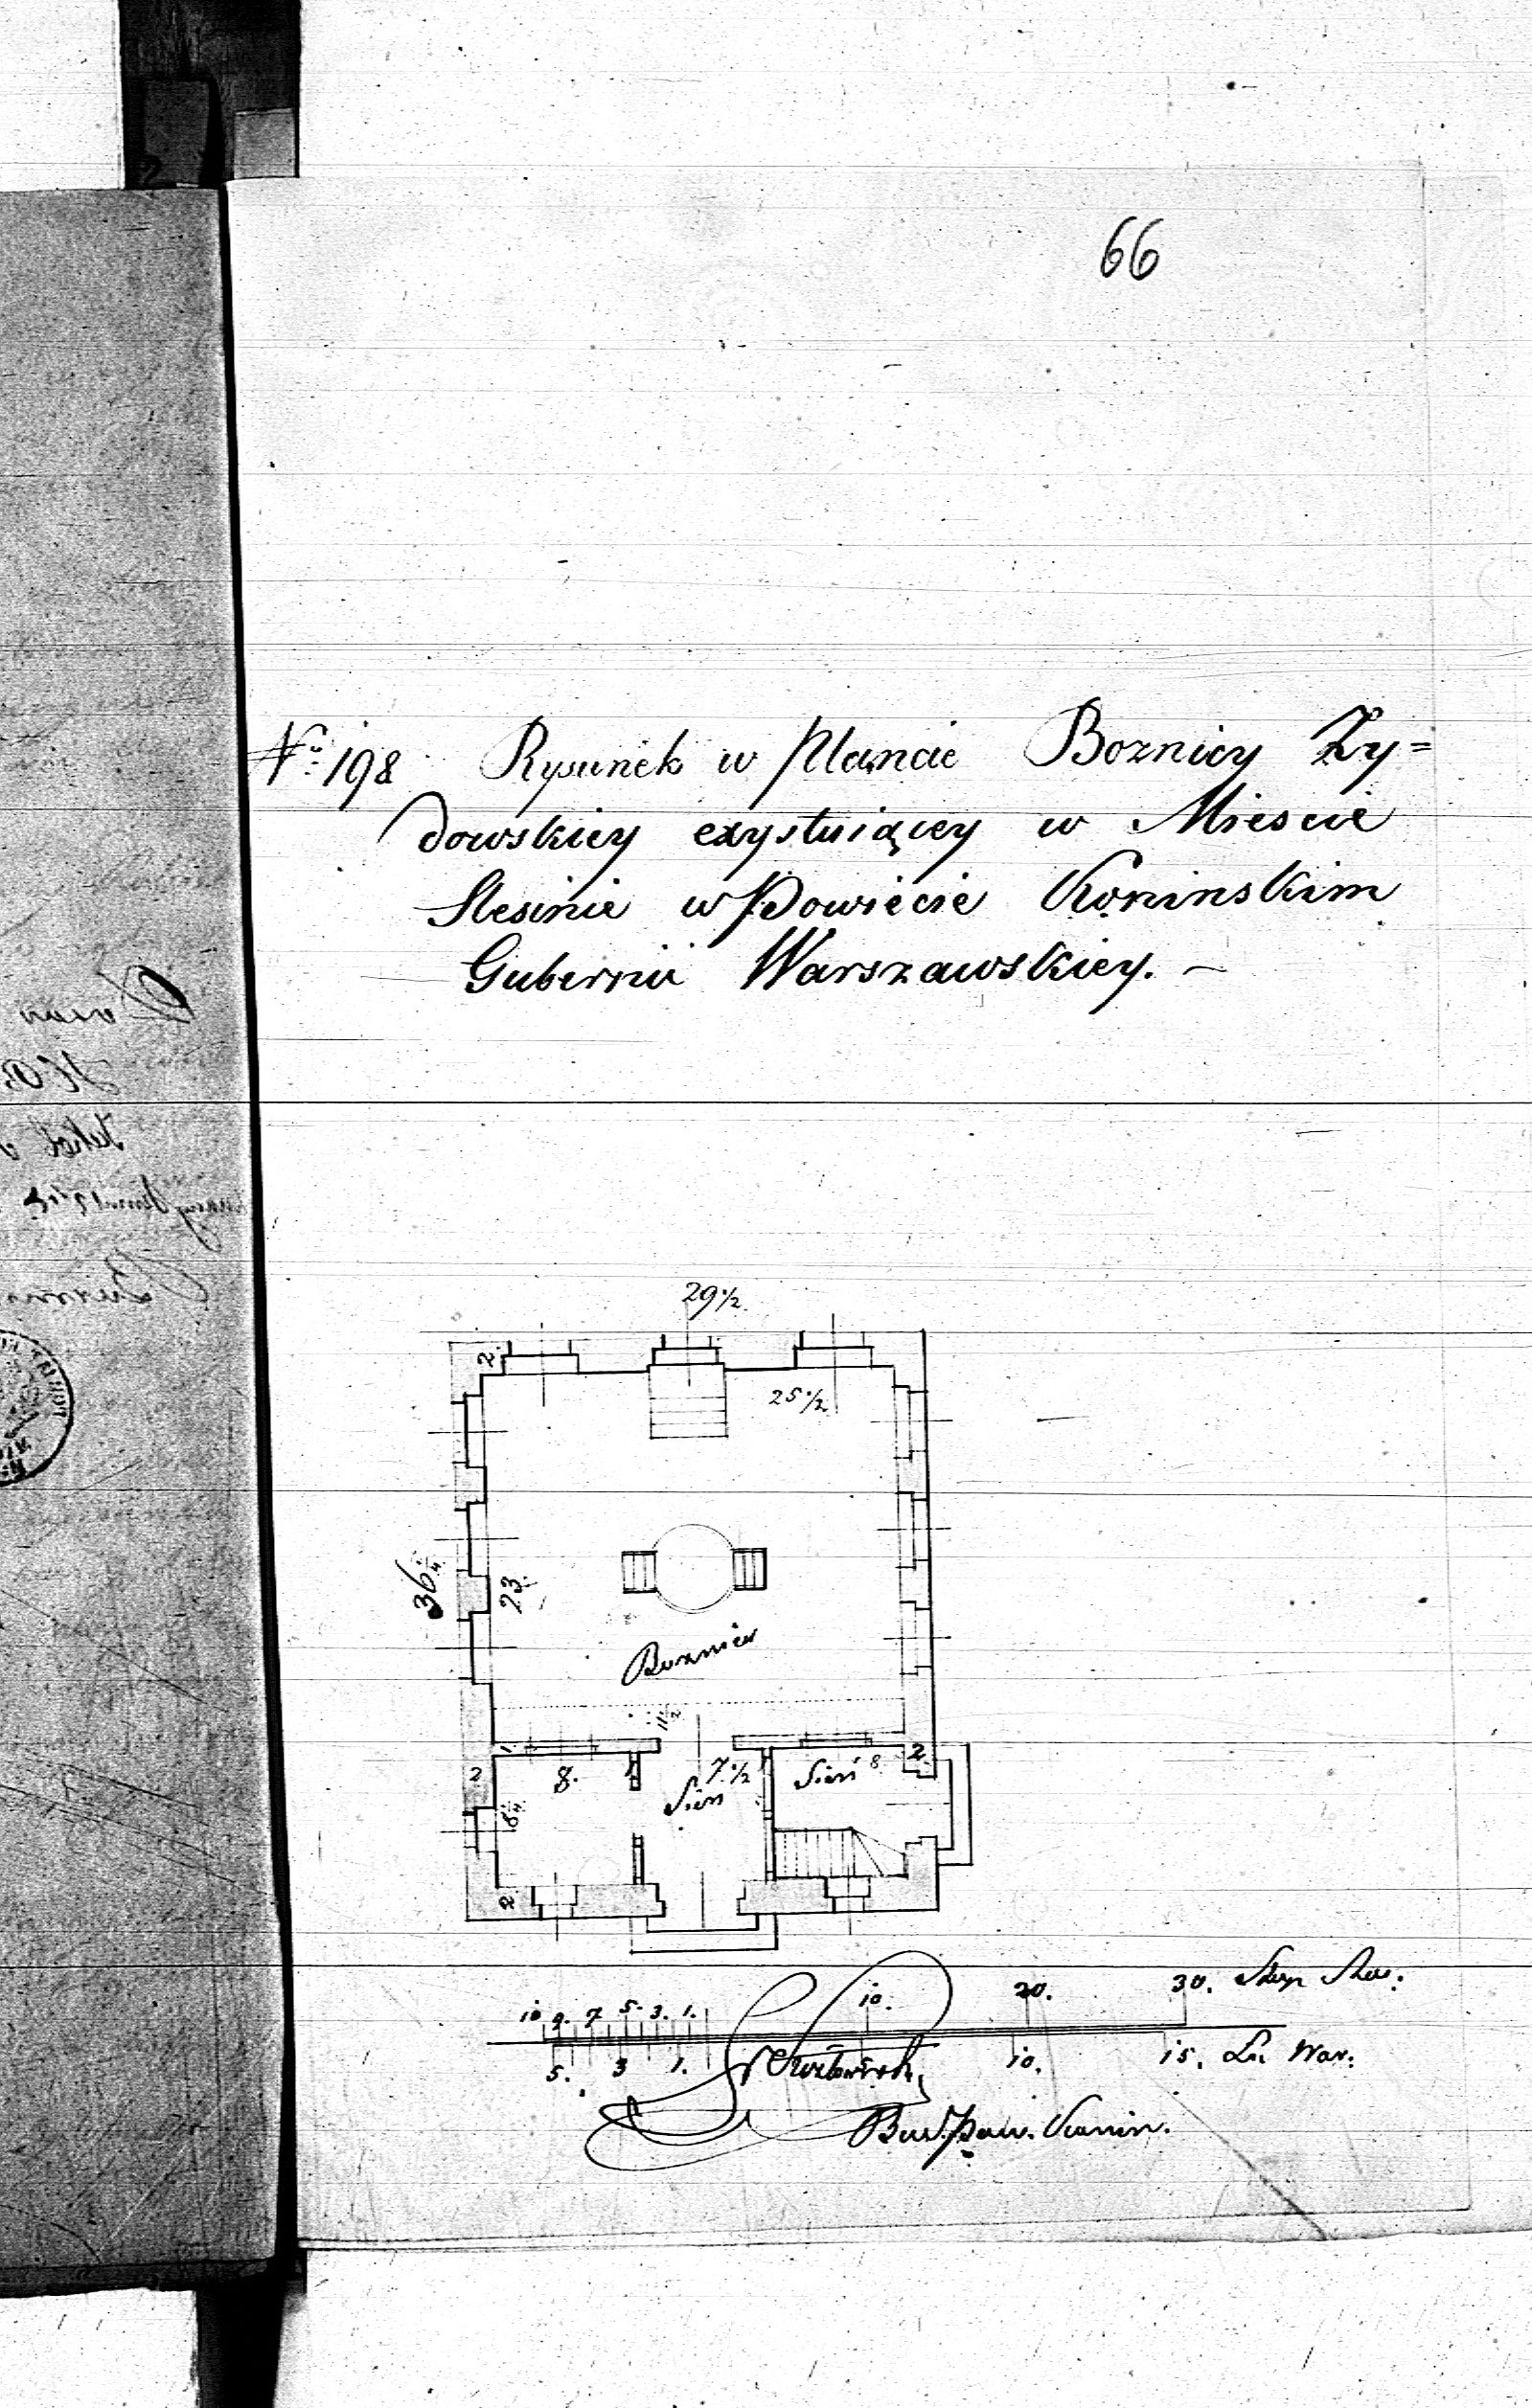 66
No 198 Rysunek w Plancie Boznicy Zy=
dowskiey exystuiącey w Miescie
Slesinie w Powiecie Koninskim
Gubernii Warszawskiey.
29 1/2
2.
25 1/2
36 1/4
23.
Boznica
1 1/2
1
8.
7 1/2
Sień
Sień 8
2.
2
6 1/4
2
10 9. 7 5. 3. 1. 10. 20. 30.
5. 3 1. 10. 15. Łu War:
Bud. Pow. Konin.